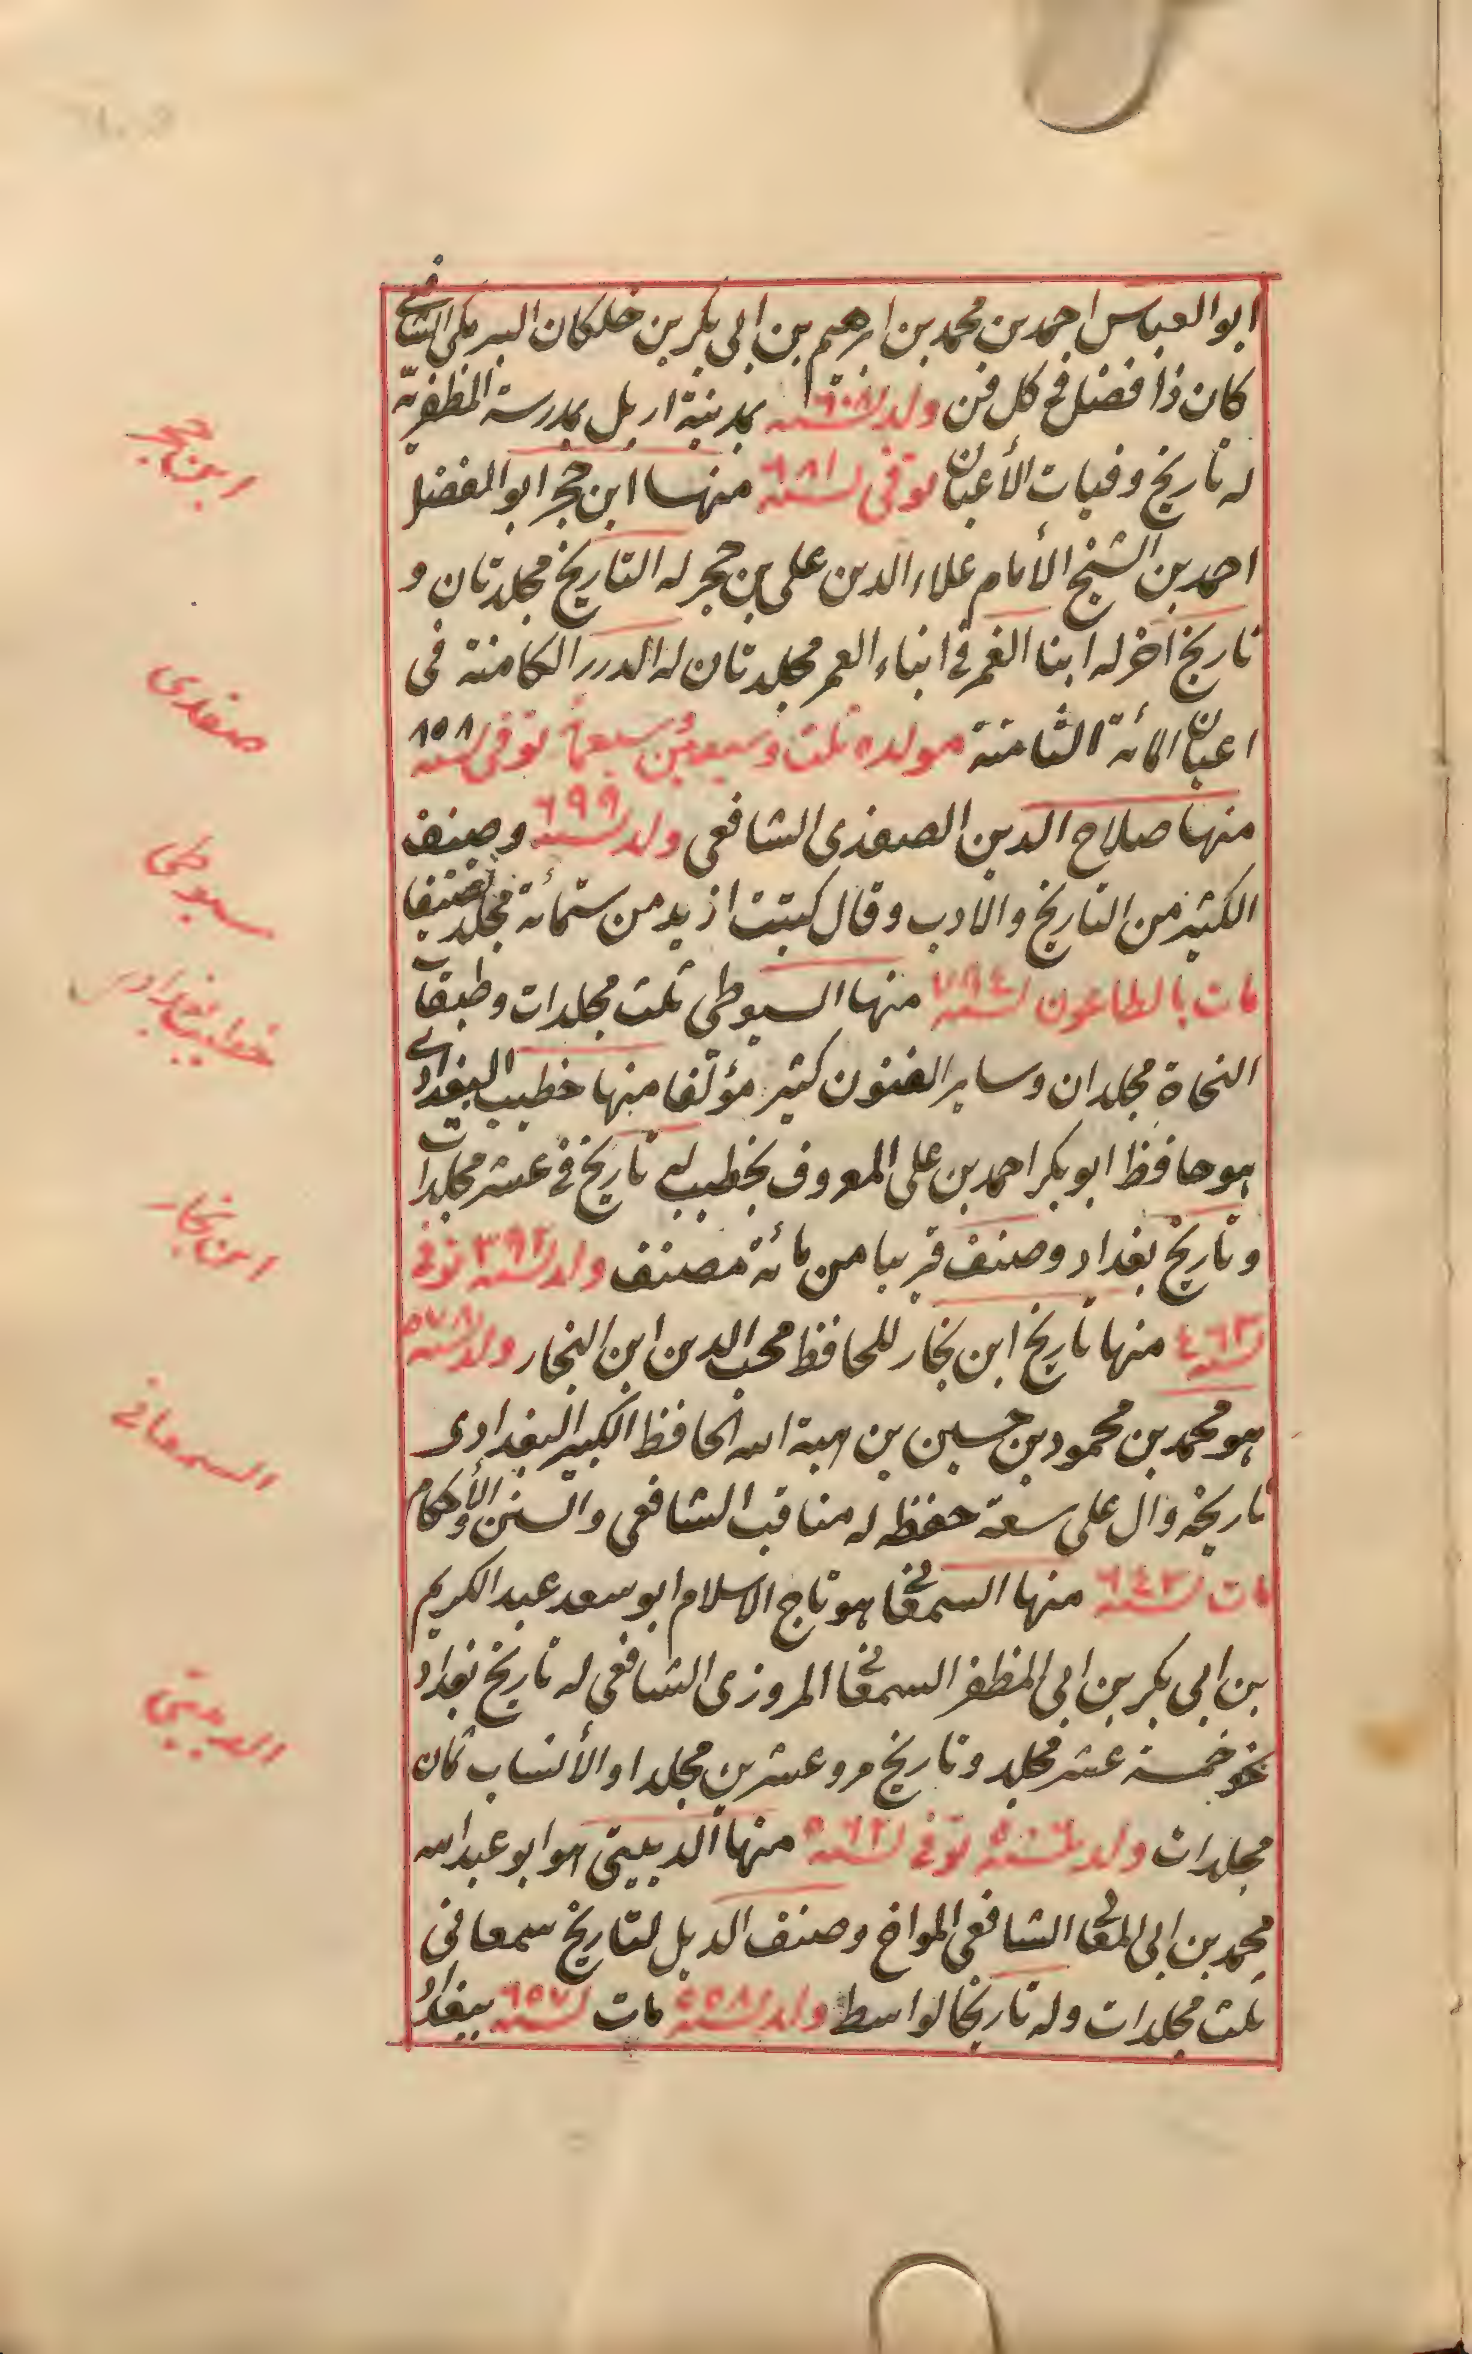 ابو العباس احمد بن محمد بن ابرهيم بن ابى بكر بن خلكان البرمكى الشافعى
كان ذا فضل فى كل فن ولد سنة ٦٠٨ بمدينة اربل بمدرسة المظفريّة
له تاريخ وفيات الأعيان توفى سنة ٦٨١ منها ابن حجر ابو الفضل
احمد بن الشيخ الأمام علاء الدين على بن حجر له التاريخ مجلدتان و
تاريخ اخر له ابنا الغمر فى انباء العمر مجلدتان له الدرر الكامنة فى
اعيان المأنة الثامنة مولده ثلث وسبعين وسبعمأة توفى سنة ٨٥٨
منها صلاح الدين الصفدى الشافعى ولد سنة ٦٩٩ وصنف
الكثير من التاريخ والادب وقال كتبت ازيد من ستمائة مجلد تصنيفا
مات بالطاعون سنة ٧٦٤ منها السيوطى ثلث مجلدات وطبقات
النحاة مجلدان وساير الفنون كثير مؤلّفا منها خطيب البغدادى
هو حافظ ابو بكر احمد بن على المعروف بخطيب له تاريخ فى عشر مجلدات
وتاريخ بغداد وصنف قريبا من مائة مصنف ولد سنة ٣٩٢ توفى
سنة ٤٦٣ منها تاريخ ابن نجار للحافظ محب الدين ابن النجار ولد سنة ٥٧٨
هو محمد بن محمود بن حسين بن هبة الله الحافظ الكبير البغدادى
تاريخه دال على سعة حفظه له مناقب الشافعى والسنن والأحكام
مات سنة ٦٤٣ منها السمعانى هو تاج الاسلام ابو سعد عبد الكريم
بن ابى بكر بن ابى المظفر السمعانى المروزى الشافعى له تاريخ بغداد
نحو خمسة عشر مجلد وتاريخ مرو عشرين مجلدا والأنساب ثمان
مجلدات ولد سنة ٥٠٦ توفى سنة ٥٦٢ منها الدبيتى هو ابو عبد الله
محمد بن ابى المعالى الشافعى المواخ وصنف الديل لتاريخ سمعانى
ثلث مجلدات وله تاريخا لواسط ولد سنة ٥٥٨ مات سنة ٦٥٧ ببغداد
ابن حجر
صفدى
سيوطى
خطيب بغدادى
ابن نجار
السمعانى
الدبيتى